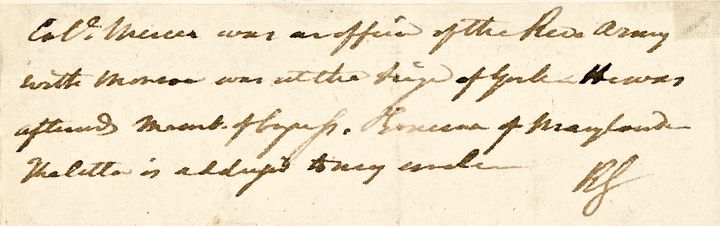 Col. Mercer was an officer of the Rev. Army
with Monroe was at the Siege of York - He was
afterwds Memb. of Congss. & Governor of Maryland -
The letter is address'd to my uncle -
RG